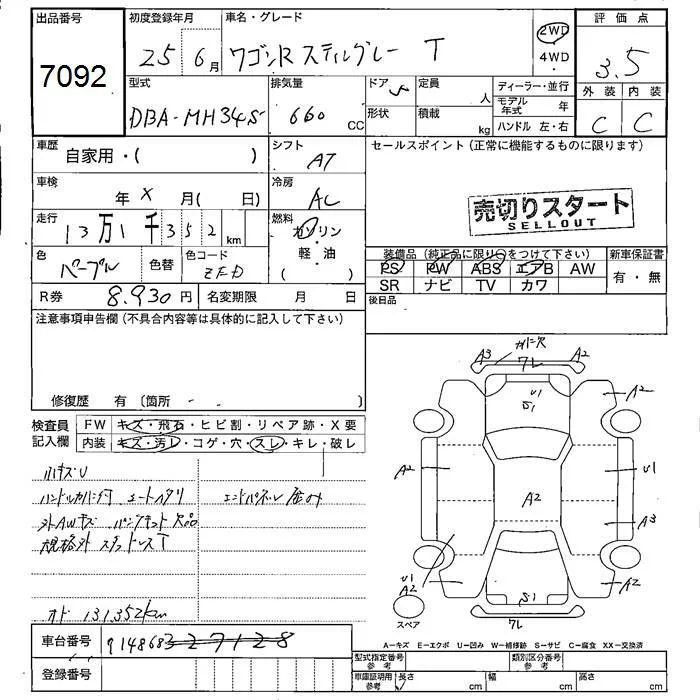 出品番号
7092
初度登録年月
25 6月
車名・グレード
ワゴンR スティングレー T
2WD
4WD
評価点
3.5
外装 内装
C C
型式
DBA-MH34S
排気量
660 CC
ドア 5
形状
定員 人
積載 kg
ディーラー・並行
モデル年式 年
ハンドル 左・右
車歴
自家用・( )
シフト
AT
セールスポイント(正常に機能するものに限ります)
車検
年 X 月( 日)
冷房
AC
売切りスタート
SELLOUT
走行
13万1千352km
燃料
ガソリン
・
軽・油
色
パープル
色替
色コード
ZFD
装備品(純正品に限り○をつけて下さい)
PS PW ABS エアB AW
SR ナビ TV カワ
新車保証書
有・無
R券 8.930円
名変期限 月 日
後日品
注意事項申告欄(不具合内容等は具体的に記入して下さい)
修復歴 有 (箇所 )
検査員
記入欄
FW キズ・飛石・ヒビ割・リペア跡・X要
内装 キズ・汚レ・コゲ・穴・スレ・キレ・破レ
外AWキズ パンクキット欠品
規格外 スタッドレスT
オド 131,352km
車台番号
登録番号
A3
ワレ
A2
U1
A2
A2
A2
U1
A3
U1
A2
A2
S1
ワレ
スペア
A-キズ E-エクボ U-凹み W-補修跡 S-サビ C-腐食 XX-交換済
型式指定番号
参考
類別区分番号
参考
車庫証明用
参考
長さ cm
幅 cm
高さ cm